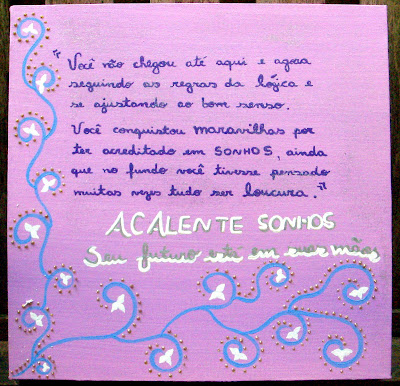 "Você não chegou até aqui e agora
seguindo as regras da lójica e
se ajustando ao bom senso.
Você conquistou maravilhas por
ter acreditado em SONHOS, ainda
que no fundo você tivesse pensado
muitas vezes tudo ser loucura."
ACALENTE SONHOS
Seu futuro está em suas mãos